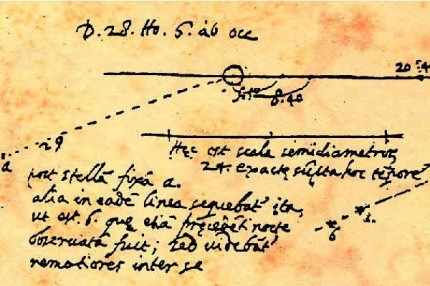 D. 28. Ho. 6. ab occ
8.40
29
a
Hęc est scala semidiametros
24. exacte
hoc tẽpore
post stellã fixã a.
alia in eadẽ linea sequebat ita,
ut est .b. que etiã precedẽti nocte
observata fuit; sed videbãt
remotiores inter se
b